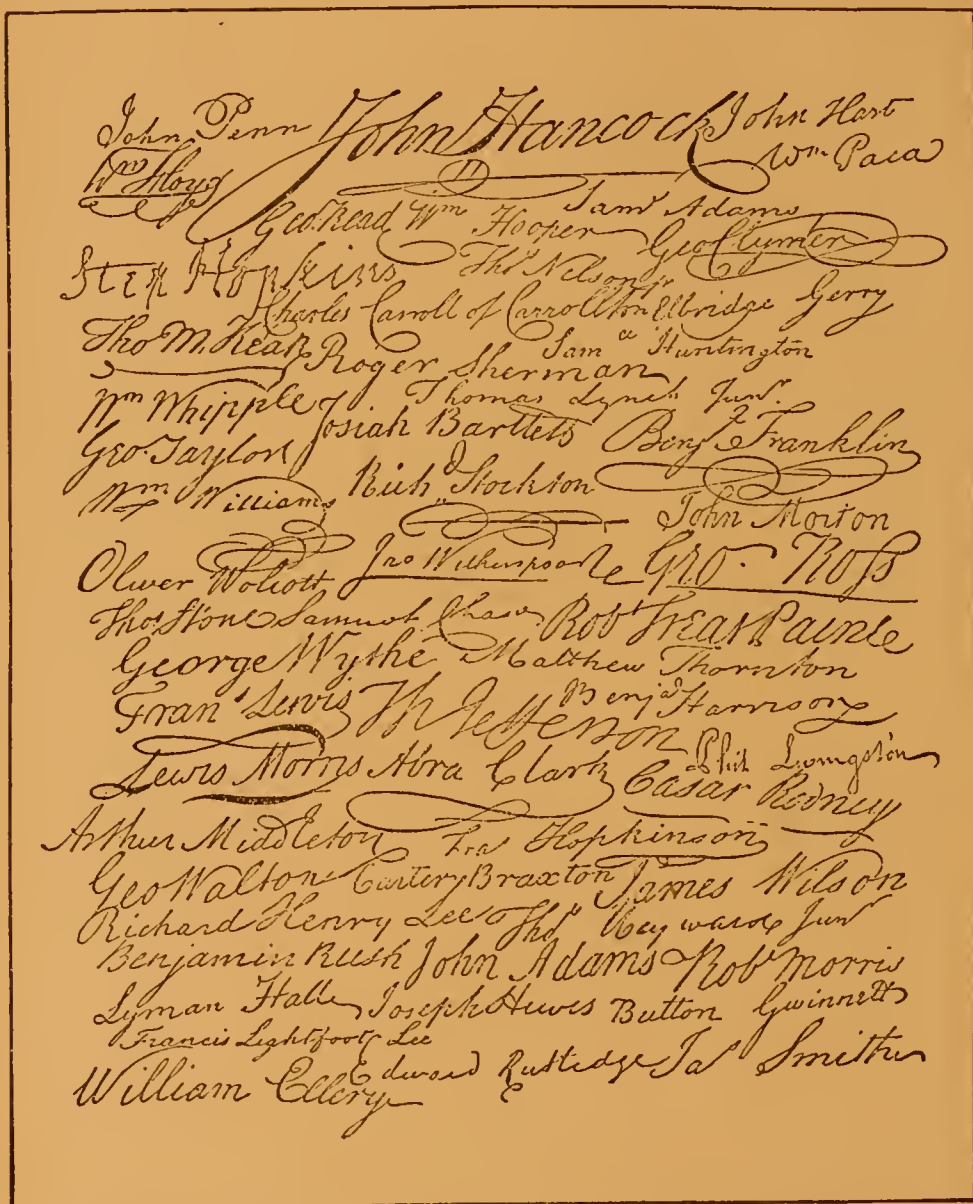 John Penn John Hancock John Hart
Wm Floyd Wm Paca
Geo. Read Wm Hooper Saml Adams
Geo Clymer
Step Hopkins Thos Nelson jr
Charles Carroll of Carrollton Elbridge Gerry
Tho M. Kean Roger Sherman Saml Huntington
Wm Whipple Thomas Lynch Junr.
Josiah Bartlett Benj Franklin
Geo. Taylor
Wm Williams Richd Stockton John Morton
Oliver Wolcott Jno Witherspoon Geo. Ross
Thos Stone Samuel Chase Robt Treat Paine
George Wythe Matthew Thornton
Frans Lewis Th Jefferson Benja Harrison
Lewis Morris Abra Clark Phil. Livingston
Casar Rodney
Arthur Middleton Fras Hopkinson
Geo Walton Carter Braxton James Wilson
Richard Henry Lee Thos Heyward Junr
Benjamin Rush John Adams Robt Morris
Lyman Hall Joseph Hewes Button Gwinnett
Francis Lightfoot Lee
William Ellery Edward Rutledge Jas Smith